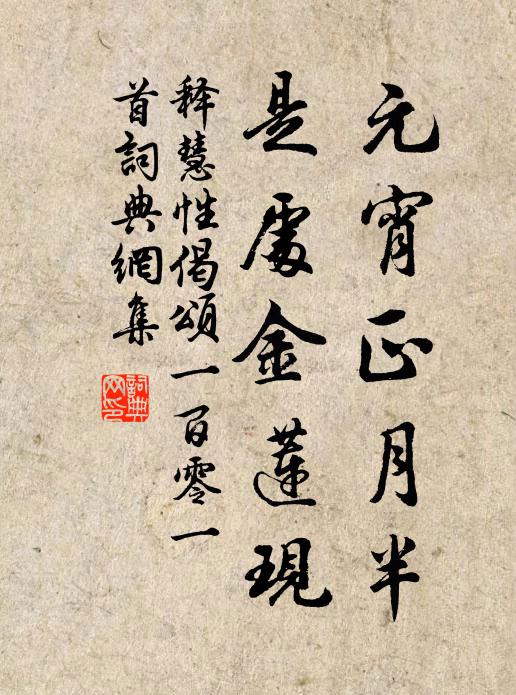 元宵正月半
是處金蓮現
釋慧性偈頌一百零一
首詞典網集
詞典
网印